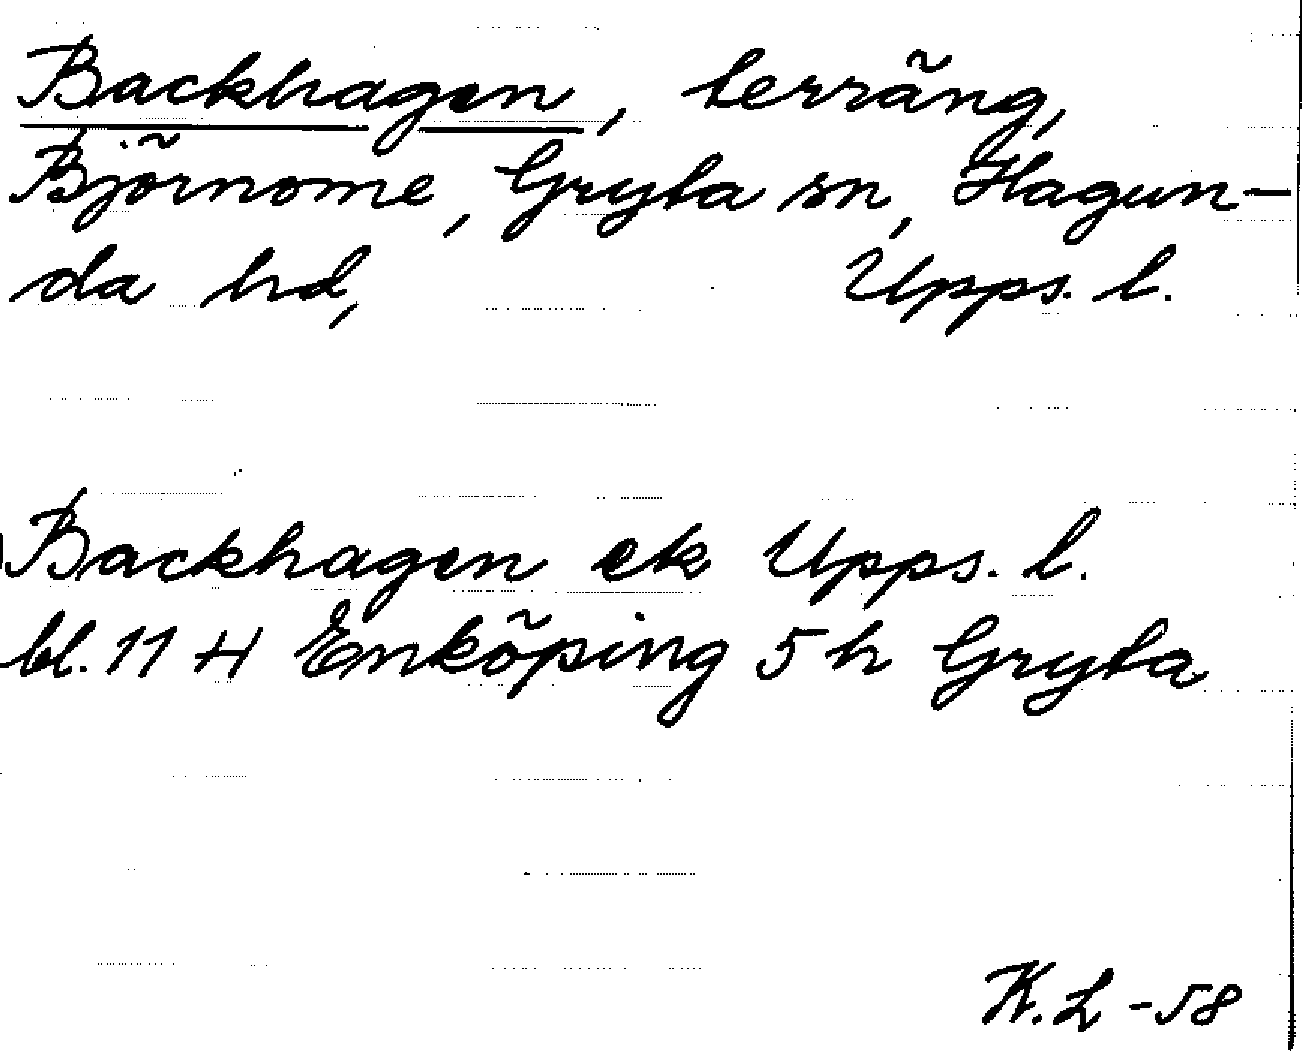 Backhagen, terräng,
Björnome, Gryta sn, Hagun-
da hd, Upps. l.
Backhagen ek Upps. l.
bl. 11 H Enköping 5 h Gryta
K. L -58